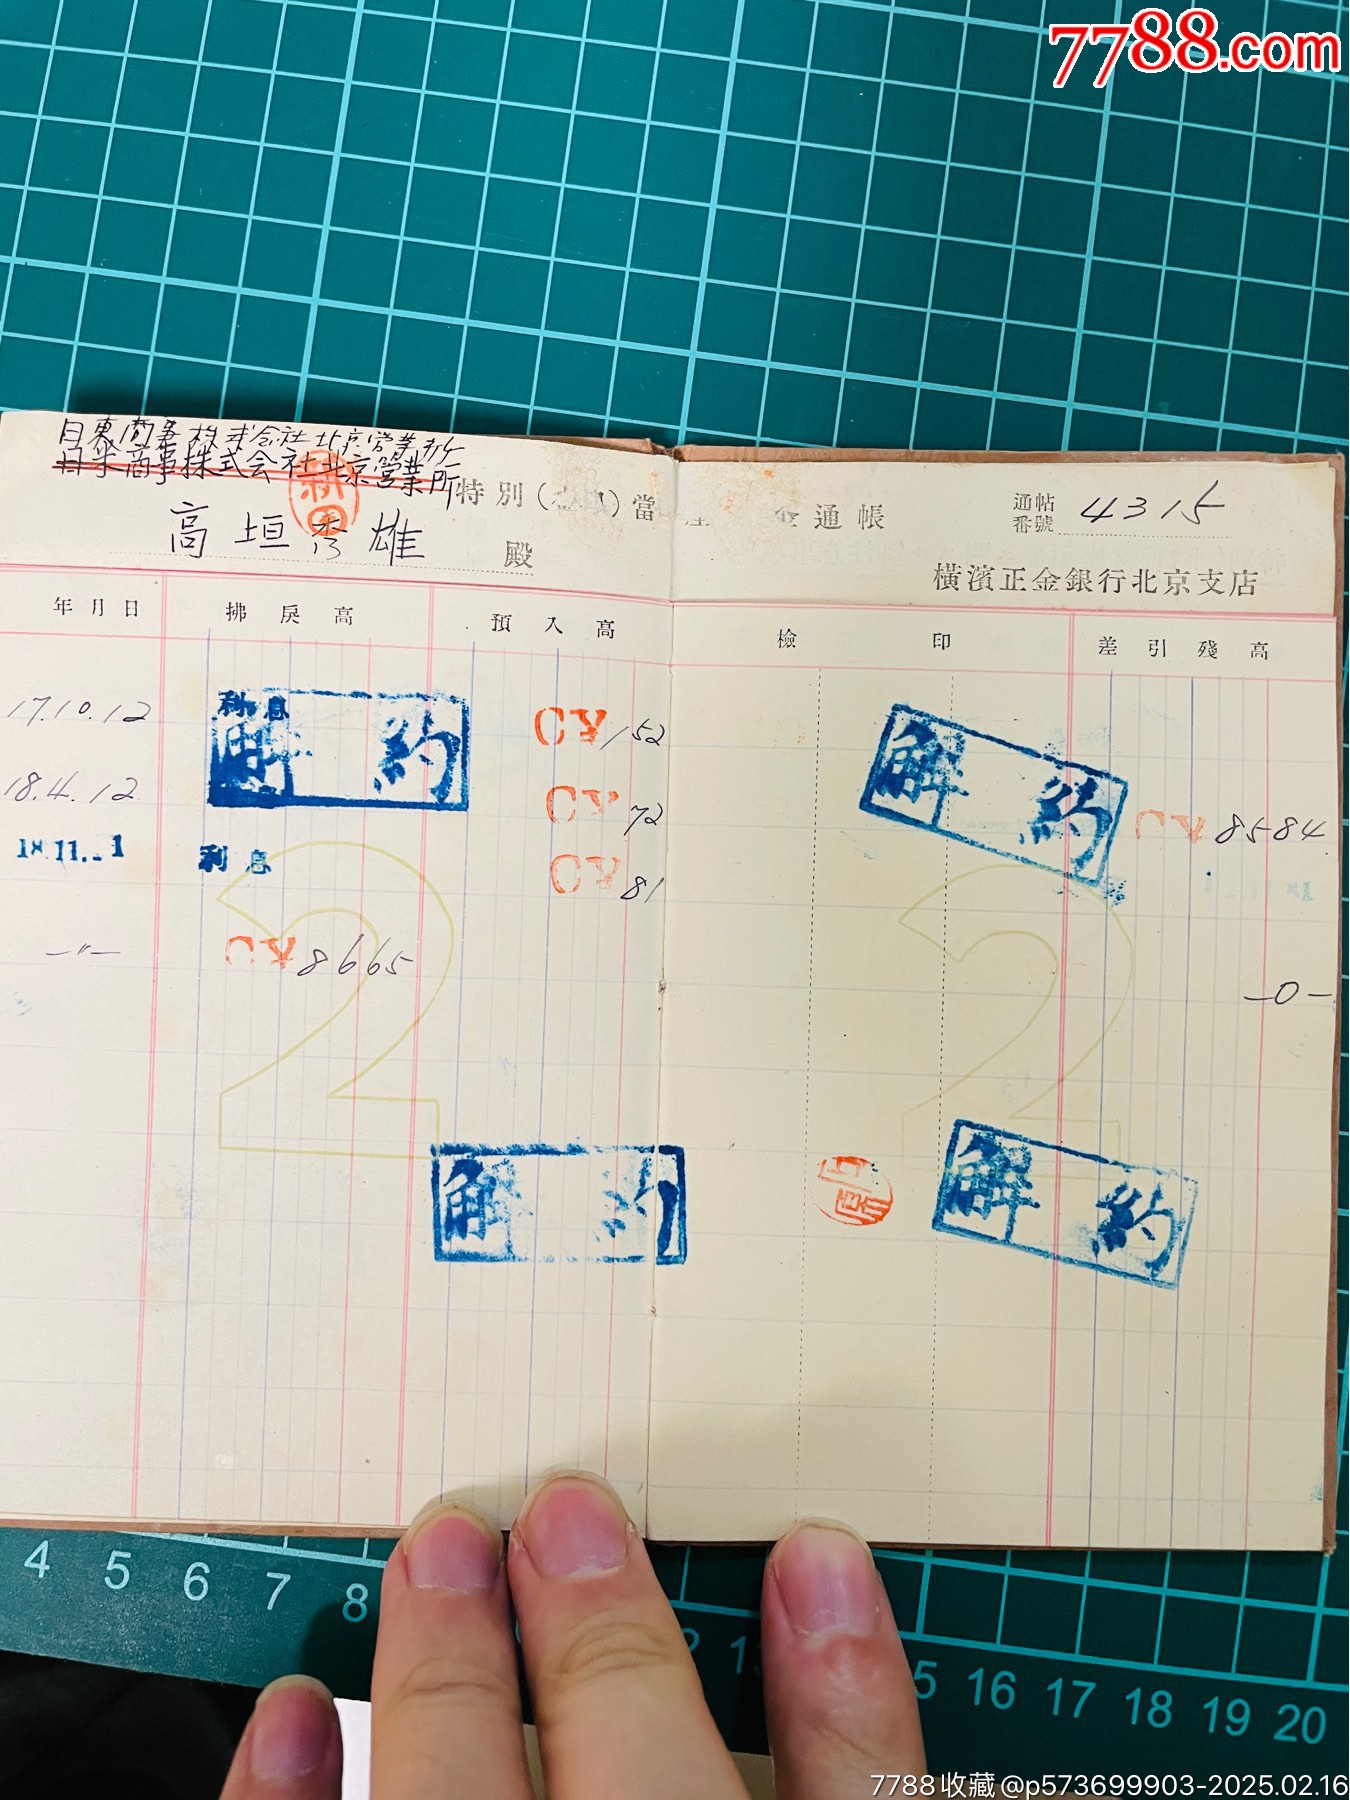 7788.com
日東商事株式会社北京営業所
日米商事株式会社北京営業所
特別( )當 金通帳
通帖番號 4315
高垣秀雄 殿
橫濱正金銀行北京支店
年月日 拂戾高 預入高 檢印 差引殘高
17.10.12 利息 152
解約
解約
18.4.12 72 8584
18.11.-1 利息 81
—〃— 8665
—0—
2 2
解約
解約
4 5 6 7 8 15 16 17 18 19 20
7788收藏@p573699903-2025.02.16